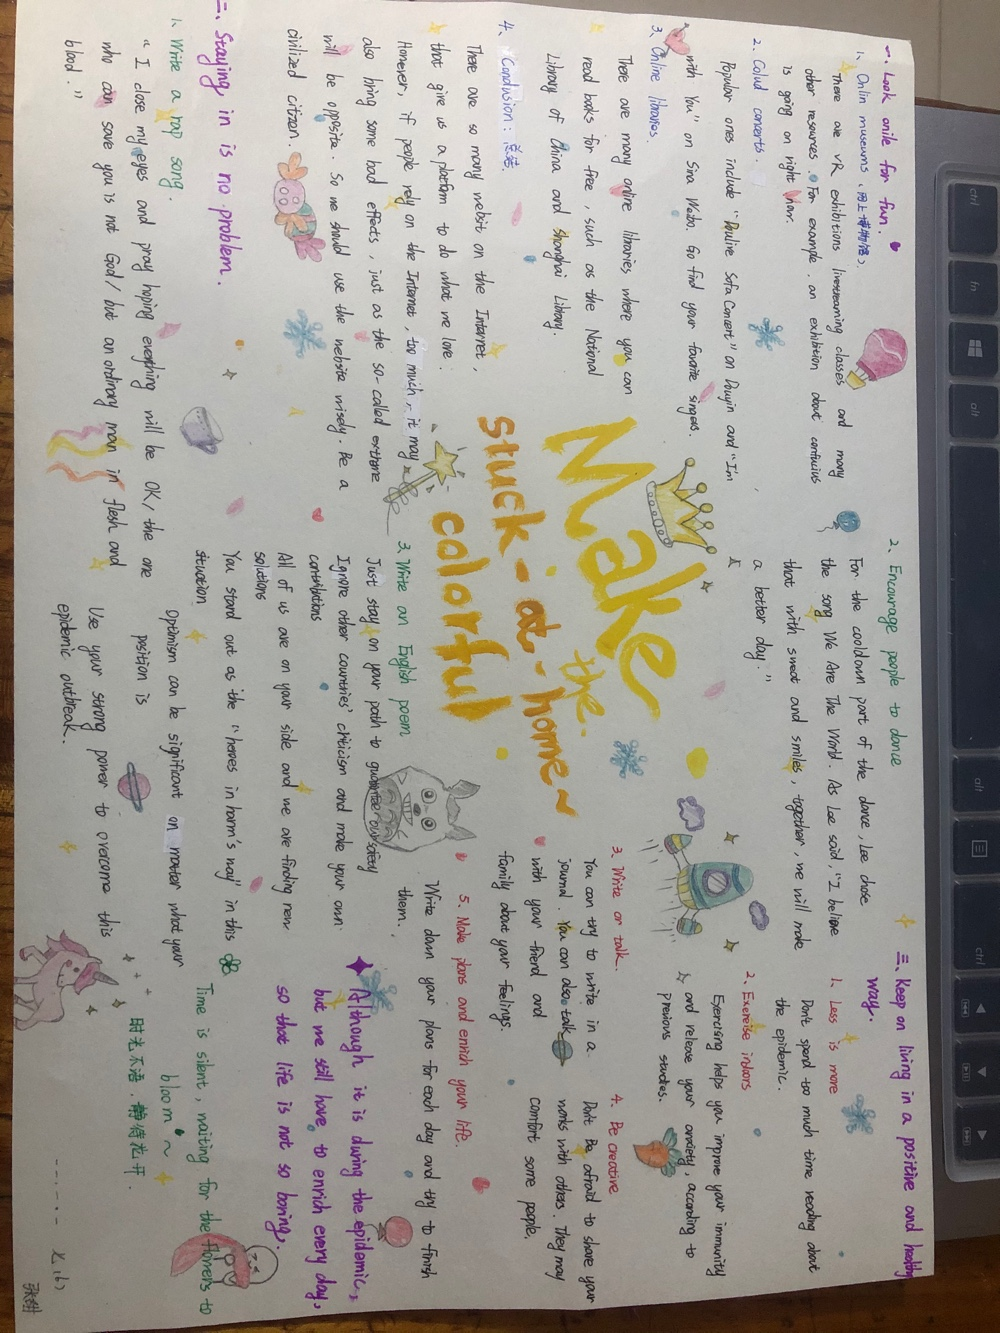 一. Look onile for fun.
1. Onlin museums (网上博物馆).
There are VR exhibitions livestreaming classes and many
other resources. For example. an exhibition about confucius
is going on right now.
2. Colud concerts.
Popular ones include "Pauline Sofa Concert" on Douyin and "I'm
with You" on Sina Weibo. Go find your favorite singers.
3. Online libraries.
There are many online libraries where you can
read books for free, such as the National
Library of China and Shanghai Library.
4. Conclusion: 总结.
There are so many websit on the Internet,
that give us a platform to do what we love.
However, if people rely on the Internet, too much, it may
also bring some bad effects, just as the so-called extreme
will be opposite. So we should use the website wisely. Be a
civilized citizen.
二. Staying in is no problem.
1. Write a rap song.
"I close my eyes and pray hoping everything will be OK/ the one
who can save you is not God/ but an ordinary man in flesh and
blood."
Make
the
stuck-at-home~
colorful
2. Encourage people to dance
For the cooldown part of the dance, Lee chose
the song We Are The World. As Lee said, "I believe
that with sweat and smiles, together, we will make
a better day."
3. Write an English poem
Just stay on your path to guarantee our safety
Ignore other countries' criticism and make your own
contributions
All of us are on your side and we are finding new
solutions
You stand out as the "heroes in harm's way" in this
situation
Optimism can be significant on matter what your
position is
Use your strong power to overcome this
epidemic outbreak.
三. Keep on living in a positive and healthy
way.
1. Less is more
Don't spend too much time reading about
the epidemic.
2. Exercise indoors
Exercising helps you improve your immunity
and release your anxiety, according to
previous studies.
3. Write or talk.
You can try to write in a
journal. You can also talk
with your friend and
family about your feelings.
4. Be creative
Don't Be afraid to share your
works with others. They may
comfort some people.
5. Make plans and enrich your life.
Write down your plans for each day and try to finish
them.
Although it is during the epidemic,
but we still have to enrich every day,
so that life is not so boring.
Time is silent, waiting for the flowers to
bloom~
时光不语. 静待花开.